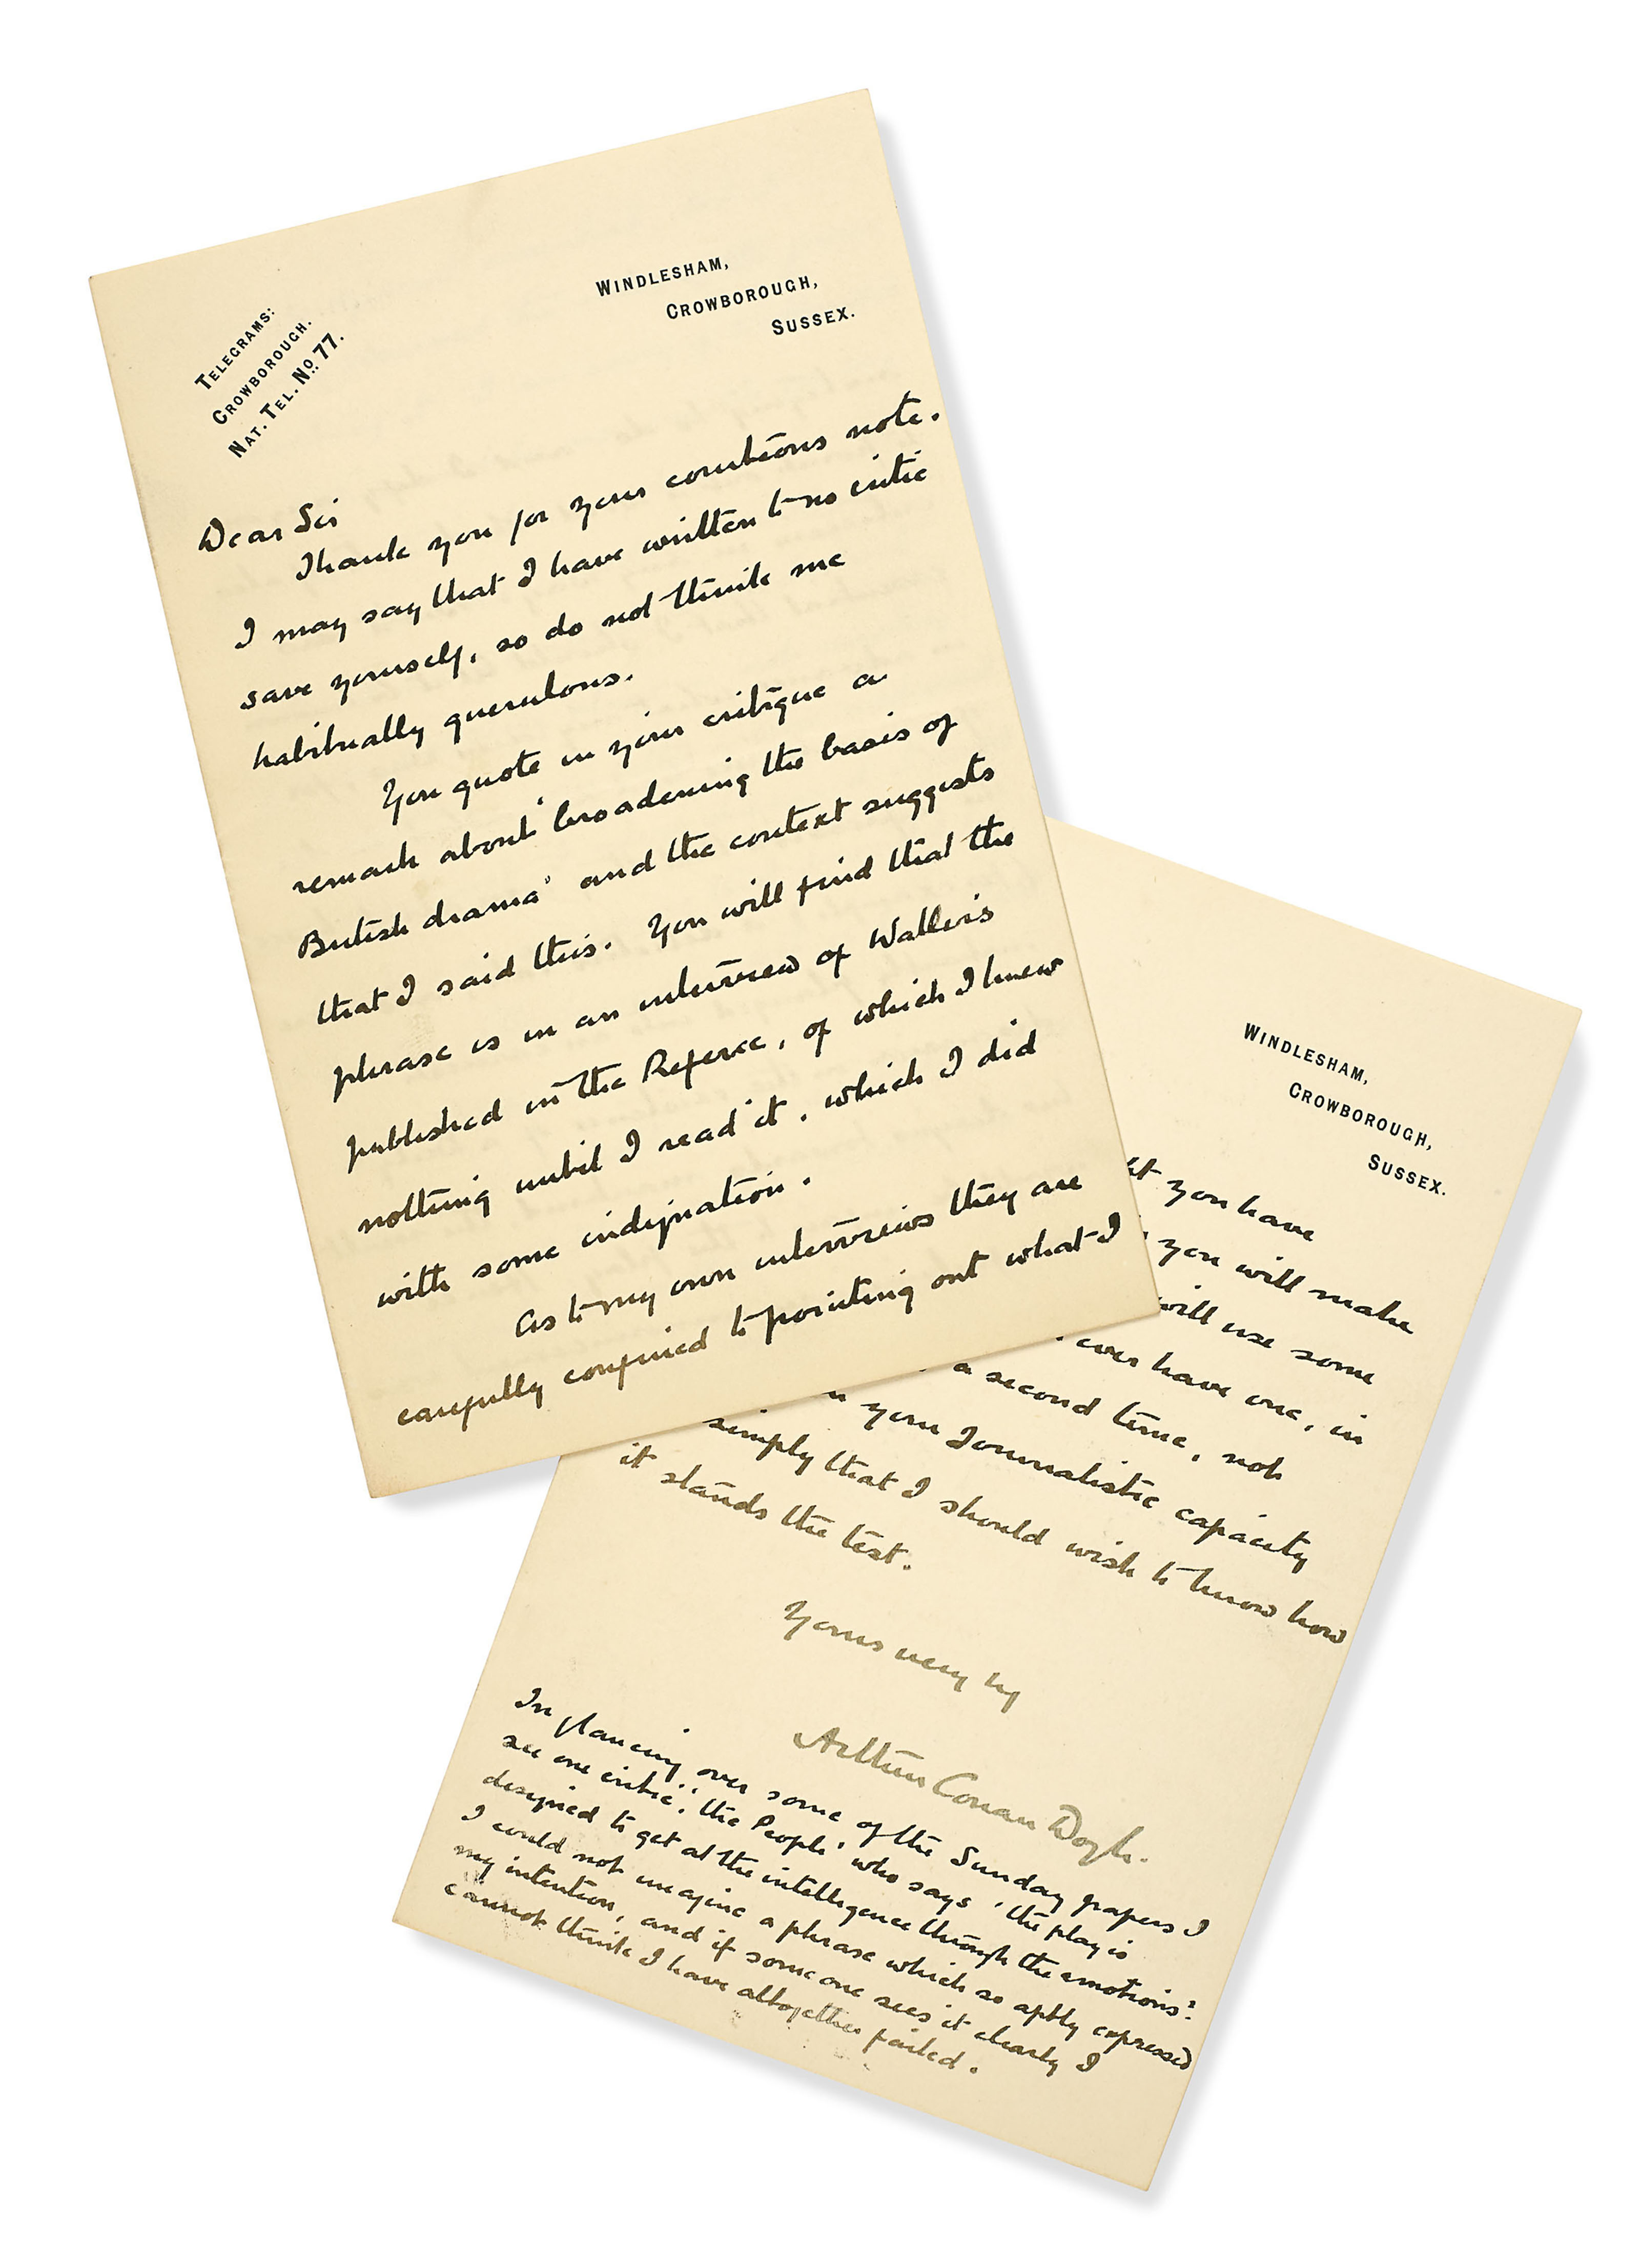 TELEGRAMS:
CROWBOROUGH.
NAT. TEL. No. 77.
WINDLESHAM,
CROWBOROUGH,
SUSSEX.
Dear Sir
Thank you for your courteous note.
I may say that I have written to no critic
save yourself, so do not think me
habitually querulous.
You quote in your critique a
remark about 'broadening the basis of
British drama' and the context suggests
that I said this. You will find that the
phrase is in an interview of Waller's
published in the Referee, of which I knew
nothing until I read it, which I did
with some indignation.
As to my own interviews they are
carefully confined to pointing out what I
WINDLESHAM,
CROWBOROUGH,
SUSSEX.
you have
you will make
will use some
ever have one, in
a second time, not
your Journalistic capacity
simply that I should wish to know how
it stands the test.
Yours very
Arthur Conan Doyle.
In glancing over some of the Sunday papers I
see one critic, 'the People', who says 'the play is
designed to get at the intelligence through the emotions'.
I could not imagine a phrase which so aptly expressed
my intention, and if someone sees it clearly I
cannot think I have altogether failed.